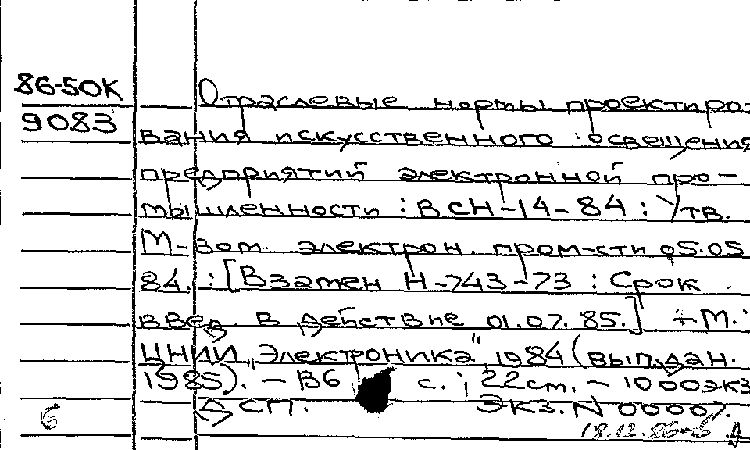 86-50К
9083
Отраслевые нормы проектиро-
вания искусственного освещения
предприятий электронной про-
мышленности : ВСН-14-84 : Утв.
М-вом электрон. пром-сти 05.05
84. : [Взамен Н-743-73 : Срок
введ. в действие 01.07.85.] - М.:
ЦНИИ "Электроника", 1984 (вып. дан.
1985). - 136 с. ; 22 cm. - 1000 экз
ДСП. Экз. N 00007.
6
18.12.86-6